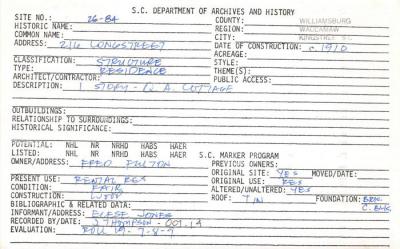 S.C. DEPARTMENT OF ARCHIVES AND HISTORY
SITE NO.: 26-84 COUNTY: WILLIAMSBURG
HISTORIC NAME: REGION: WACCAMAW
COMMON NAME: CITY: KINGSTREE S.C.
ADDRESS: 216 LONGSTREET DATE OF CONSTRUCTION: c. 1910
ACREAGE:
CLASSIFICATION: STRUCTURE STYLE:
TYPE: RESIDENCE THEME(S):
ARCHITECT/CONTRACTOR: PUBLIC ACCESS:
DESCRIPTION: 1 STORY - Q.A. COTTAGE
OUTBUILDINGS:
RELATIONSHIP TO SURROUNDINGS:
HISTORICAL SIGNIFICANCE:
POTENTIAL: NHL NR NRHD HABS HAER
LISTED: NHL NR NRHD HABS HAER S.C. MARKER PROGRAM
OWNER/ADDRESS: FRED FULTON PREVIOUS OWNERS:
ORIGINAL SITE: YES MOVED/DATE:
PRESENT USE: RENTAL RES ORIGINAL USE: RES
CONDITION: FAIR ALTERED/UNALTERED: YES
CONSTRUCTION: WOOD ROOF: TIN FOUNDATION: BRK.
BIBLIOGRAPHIC & RELATED DATA: C. BLK.
INFORMANT/ADDRESS: JONES
RECORDED BY/DATE: J THOMPSON - OCT. 19
EVALUATION: ROLL 19-7-8-9